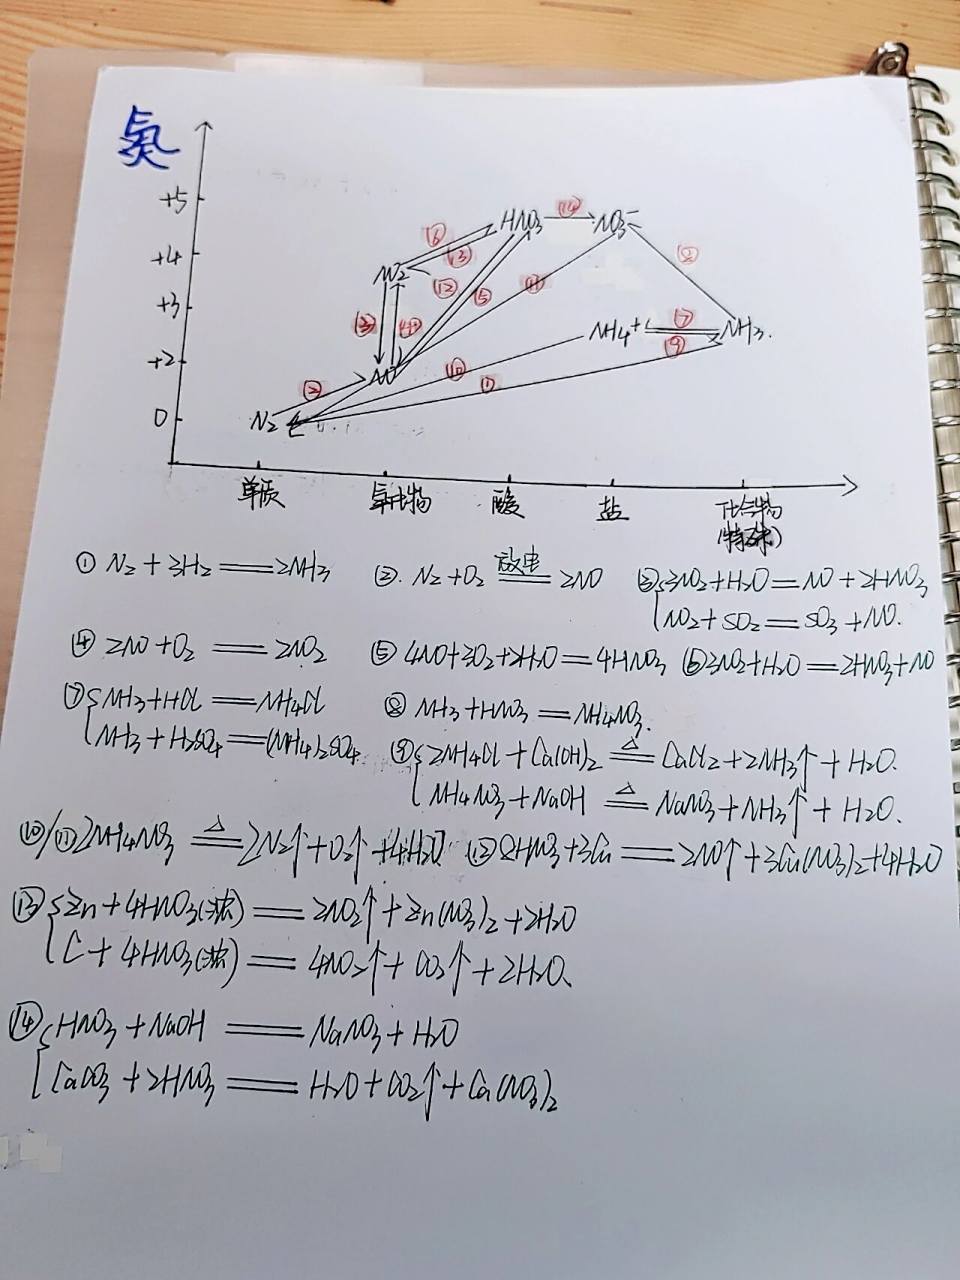 氮
+5
+4
+3
+2
0
HNO3 ⑭ NO3⁻
⑥ ⑬ ⑧
NO2 ⑫ ⑤ ⑪
③ ④ NH4⁺ ⑦ NH3.
⑨
② NO ⑩ ①
N2
单质 氧化物 酸 盐 化合物
(特殊)
① N2 + 3H2 == 2NH3 ②. N2 + O2 放电== 2NO ③{3NO2 + H2O = NO + 2HNO3
NO2 + SO2 = SO3 + NO.
④ 2NO + O2 == 2NO2 ⑤ 4NO + 3O2 + 2H2O = 4HNO3 ⑥ 3NO2 + H2O = 2HNO3 + NO
⑦{NH3 + HCl == NH4Cl ⑧ NH3 + HNO3 = NH4NO3.
NH3 + H2SO4 == (NH4)2SO4 ⑨{2NH4Cl + Ca(OH)2 △== CaCl2 + 2NH3↑ + H2O.
NH4NO3 + NaOH △== NaNO3 + NH3↑ + H2O.
⑩/⑪ 2NH4NO3 △== 2N2↑ + O2↑ + 4H2O ⑫ 8HNO3 + 3Cu == 2NO↑ + 3Cu(NO3)2 + 4H2O
⑬{Zn + 4HNO3(浓) == 2NO2↑ + Zn(NO3)2 + 2H2O
C + 4HNO3(浓) == 4NO2↑ + CO2↑ + 2H2O、
⑭{HNO3 + NaOH == NaNO3 + H2O
CaCO3 + 2HNO3 == H2O + CO2↑ + Ca(NO3)2